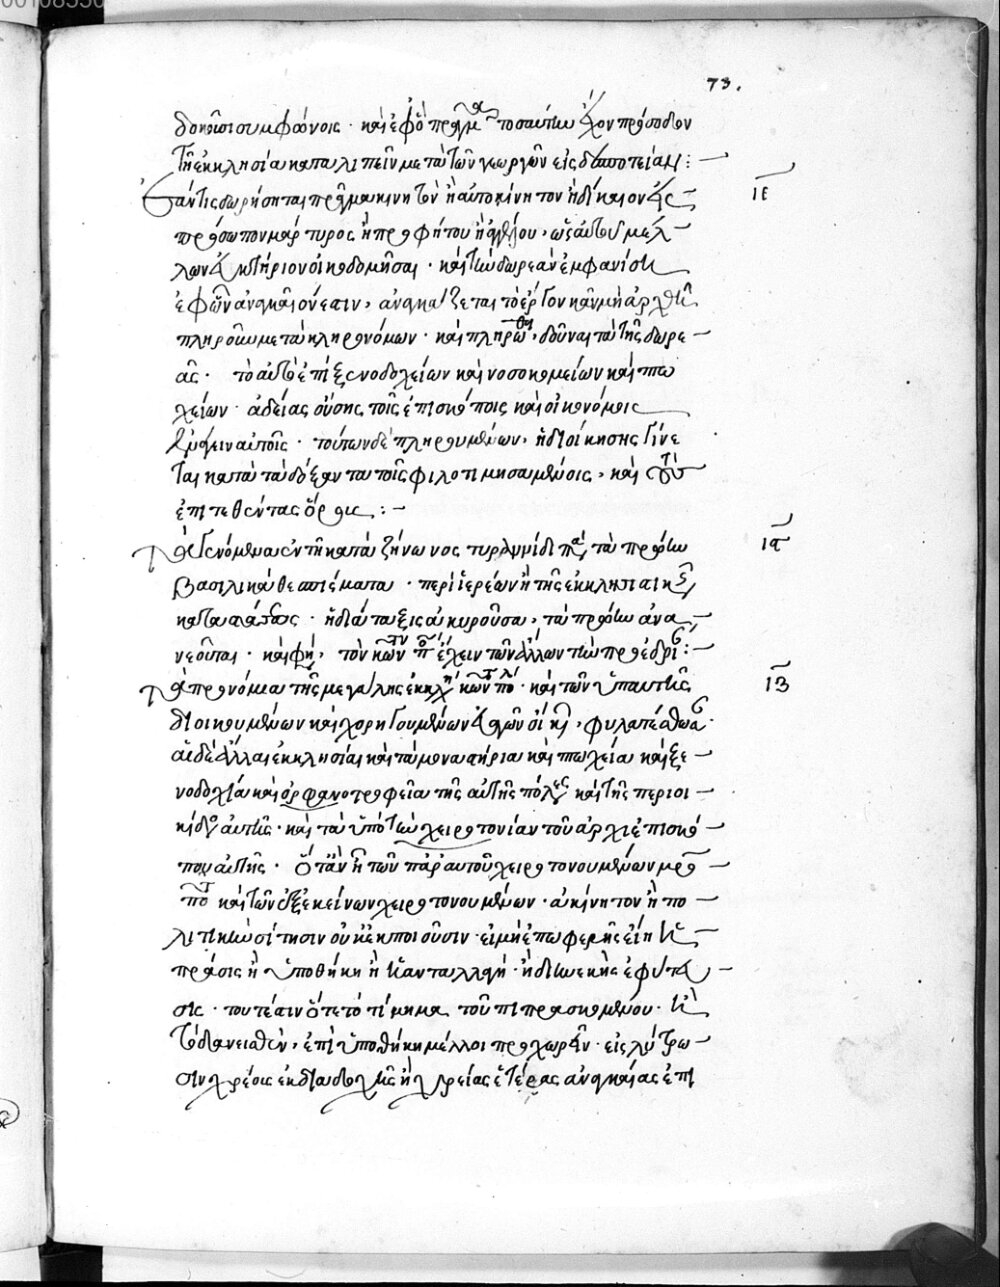 73.
δοκῶσι συμφώνοις · καὶ ἐφ' ὃ πρᾶγμα τοσαύτην ἔχον πρόσοδον
τῆ ἐκκλησία καταλιπεῖν μετὰ τῶν γεωργῶν εἰς
ἐάν τις δωρήσηται πρᾶγμα κινητὸν ἢ αὐτοκίνητον ἢ δίκαιον εἰς
ιε
πρόσωπον μάρτυρος ἢ προφήτου ἢ ἀγγέλου, ὡς αὐτοῦ μέλ
λων εὐκτήριον οἰκοδομῆσαι · καὶ τὴν δωρεὰν ἐμφανίσει
ἐφ' ὧν ἀναγκαῖόν ἐστιν, ἀναγκάζεται τὸ ἔργον κἂν μὴ ἀρχθῆ
πληροῦν μετὰ κληρονόμων · καὶ πληρωθὲν, δοῦναι τὰ τῆς δωρε
ᾶς · τὸ αὐτὸ ἐπὶ ξενοδοχείων καὶ νοσοκομείων καὶ πτω
χείων · ἀδείας οὔσης τοῖς ἐπισκόποις καὶ οἰκονόμοις
ἐνάγειν αὐτοῖς · τούτων δὲ πληρουμένων, ἡ διοίκησις γίνε
ται κατὰ τὰ δόξαντα τοῖς φιλοτιμησαμένοις, καὶ τοὺς
ἐπιτεθέντας ὅρους :-
τὰ γενόμενα ἐν τῆ κατὰ ζήνωνος τυραννίδι παρὰ τὰ πρώην
ιϛ
βασιλικὰ θεσπίσματα · περὶ ἱερέων ἢ τῆς ἐκκλησιαστικῆς
καταστάσεως · ἡ διάταξις ἀκυροῦσα, τὰ πρώην ἀνα
νεοῦται · καὶ φησὶ, τὸν κων πο ἔχειν τῶν ἄλλων τὴν προεδρίαν :-
τὰ προνόμια τῆς μεγάλης ἐκκλη κων πο · καὶ τῶν ὑπ' αὐτῆς
ιζ
διοικουμένων καὶ χορηγουμένων εὐαγῶν οἴκων, φυλαττέσθωσαν ·
αἱ δὲ ἄλλαι ἐκκλησίαι καὶ τὰ μοναστήρια καὶ πτωχεῖα καὶ ξε
νοδοχεῖα καὶ ὀρφανοτροφεῖα τῆς αὐτῆς πόλεως καὶ τῆς περιοι
κίδος αὐτῆς · καὶ τὰ ὑπὸ τὴν χειροτονίαν τοῦ ἀρχιεπισκό
που αὐτῆς · ὅταν ἢ τῶν παρ' αὐτοῦ χειροτονουμένων μρο
πο καὶ τῶν ἐξ ἐκείνων χειροτονουμένων · ἀκίνητον ἢ πο
λιτικὴν σίτησιν οὐκ ἐκποιοῦσιν · εἰ μὴ ἐπωφελὴς εἴη ἡ
πρᾶσις ἢ ὑποθήκη ἢ ἡ ἀνταλλαγὴ · ἢ διηνεκὴς ἐμφύτευ
σις · τουτέστιν ὅτε τὸ τίμημα τοῦ πιπρασκομένου · ἢ
τὸ δανεισθὲν, ἐπὶ ὑποθήκη μέλλοι προχωρεῖν · εἰς λύτρω
σιν χρέους ἐκ διαδοχῆς ἢ χρείας ἑτέρας ἀναγκαίας ἐπὶ